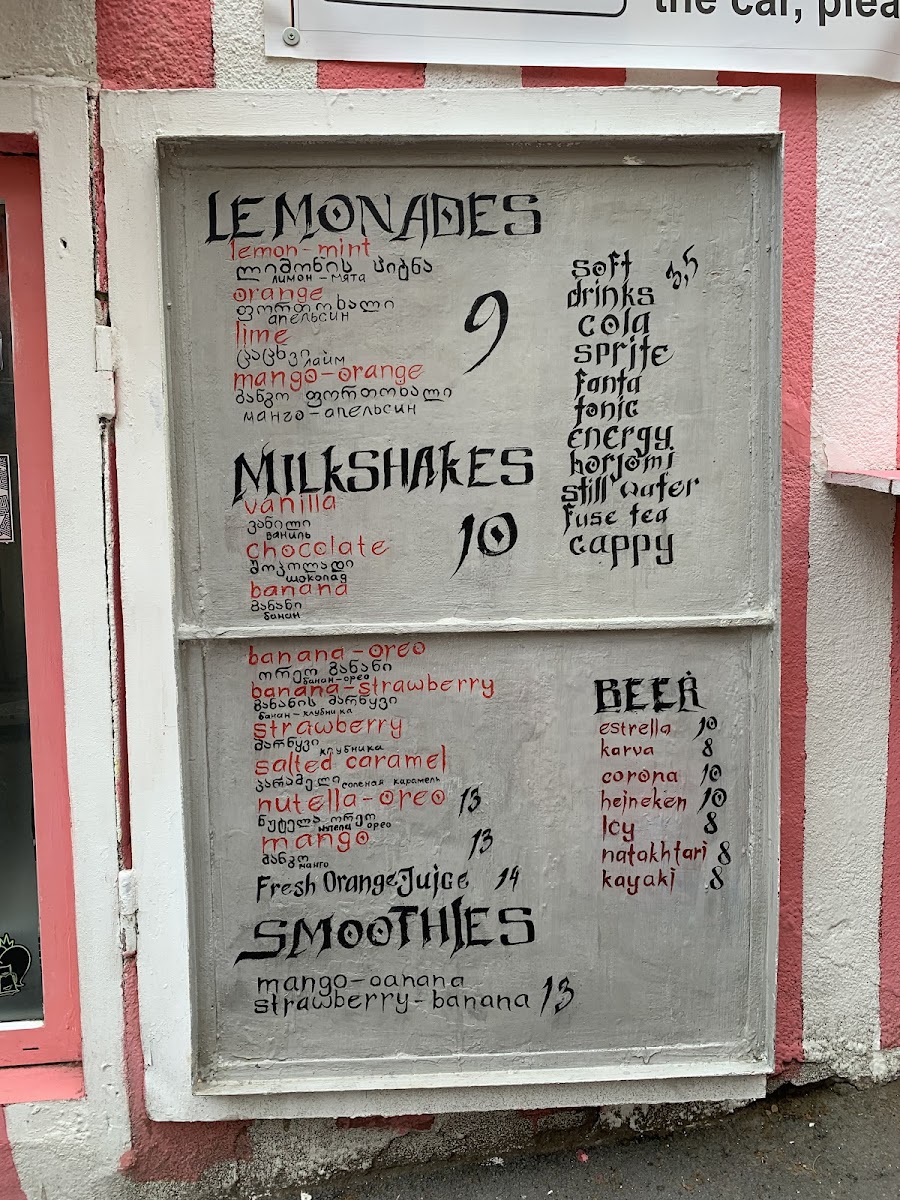 the car, plea
LEMONADES
lemon-mint
ლიმონის პიტნა
лимон-мята
orange
ფორთოხალი
апельсин
lime
ცაცხვი лайм
mango-orange
მანგო ფორთოხალი
манго-апельсин
9
MILKSHAKES
vanilla
ვანილი
ваниль
chocolate
შოკოლადი
шоколад
banana
ბანანი
банан
10
banana-oreo
ორეო ბანანი
банан-орео
banana-strawberry
ბანანის მარწყვი
банан-клубника
strawberry
მარწყვი клубника
salted caramel
კარამელი соленая карамель
nutella-oreo 13
ნუტელა ორეო
нутела орео
mango 13
მანგო манго
Fresh Orange Juice 14
SMOOTHIES
mango-banana
strawberry-banana 13
soft
drinks
cola
sprite
fanta
tonic
energy
borjomi
still water
fuse tea
cappy
BEER
estrella 10
karva 8
corona 10
heineken 10
Icy 8
natakhtari 8
kayaki 8